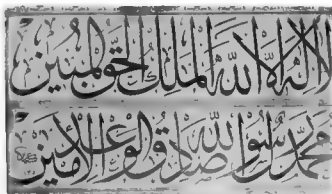 لا إله إلا الله الملك الحق المبين
محمد رسول الله صادق الوعد الأمين